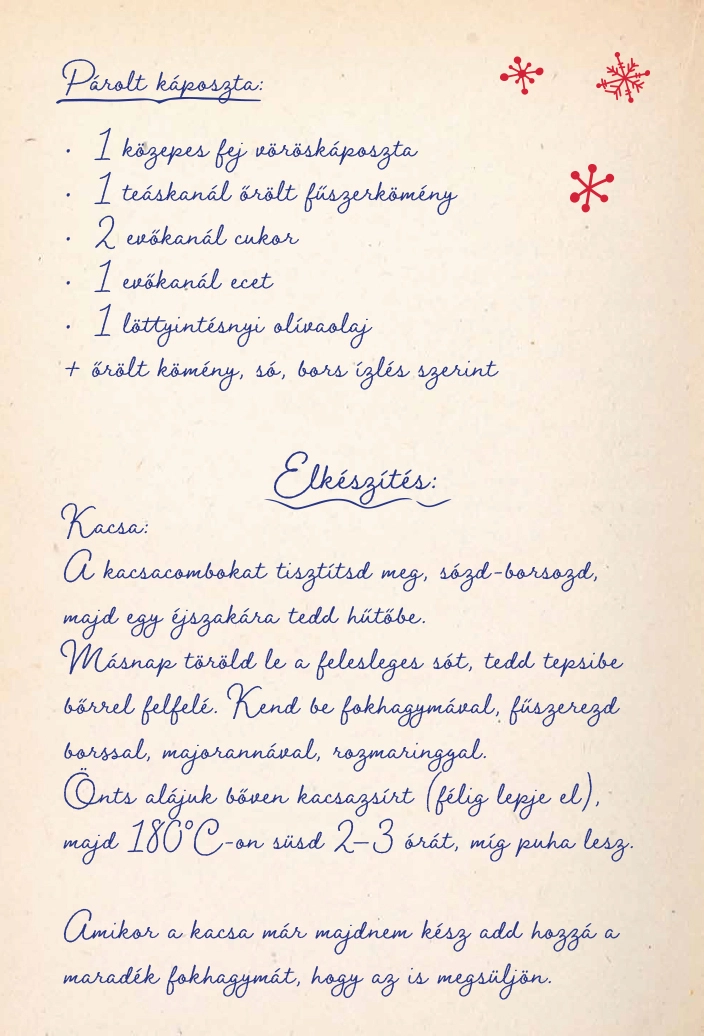 Párolt káposzta:
· 1 közepes fej vöröskáposzta
· 1 teáskanál őrölt fűszerkömény
· 2 evőkanál cukor
· 1 evőkanál ecet
· 1 löttyintésnyi olívaolaj
+ őrölt kömény, só, bors ízlés szerint
Elkészítés:
Kacsa:
A kacsacombokat tisztítsd meg, sózd-borsozd,
majd egy éjszakára tedd hűtőbe.
Másnap töröld le a felesleges sót, tedd tepsibe
bőrrel felfelé. Kend be fokhagymával, fűszerezd
borssal, majorannával, rozmaringgal.
Önts alájuk bőven kacsazsírt (félig lepje el),
majd 180°C-on süsd 2–3 órát, míg puha lesz.
Amikor a kacsa már majdnem kész add hozzá a
maradék fokhagymát, hogy az is megsüljön.